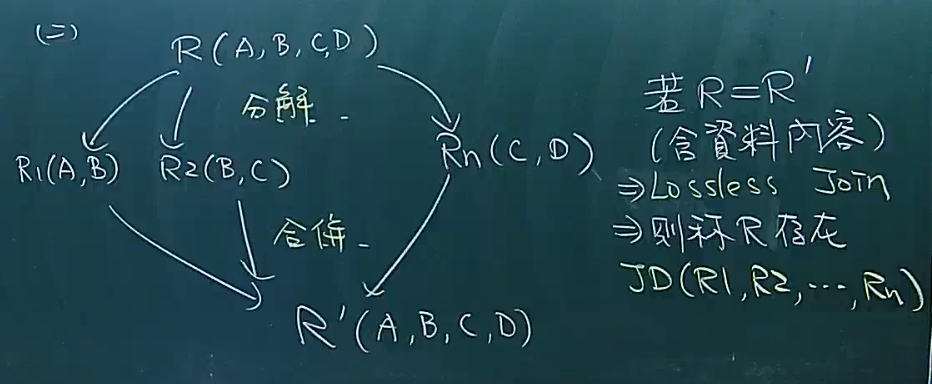 (二)
R(A,B,C,D)
分解.
R1(A,B)
R2(B,C)
Rn(C,D)
合併.
R'(A,B,C,D)
若R=R'
(含資料內容)
⇒Lossless Join
⇒則称R存在
JD(R1,R2,…,Rn)